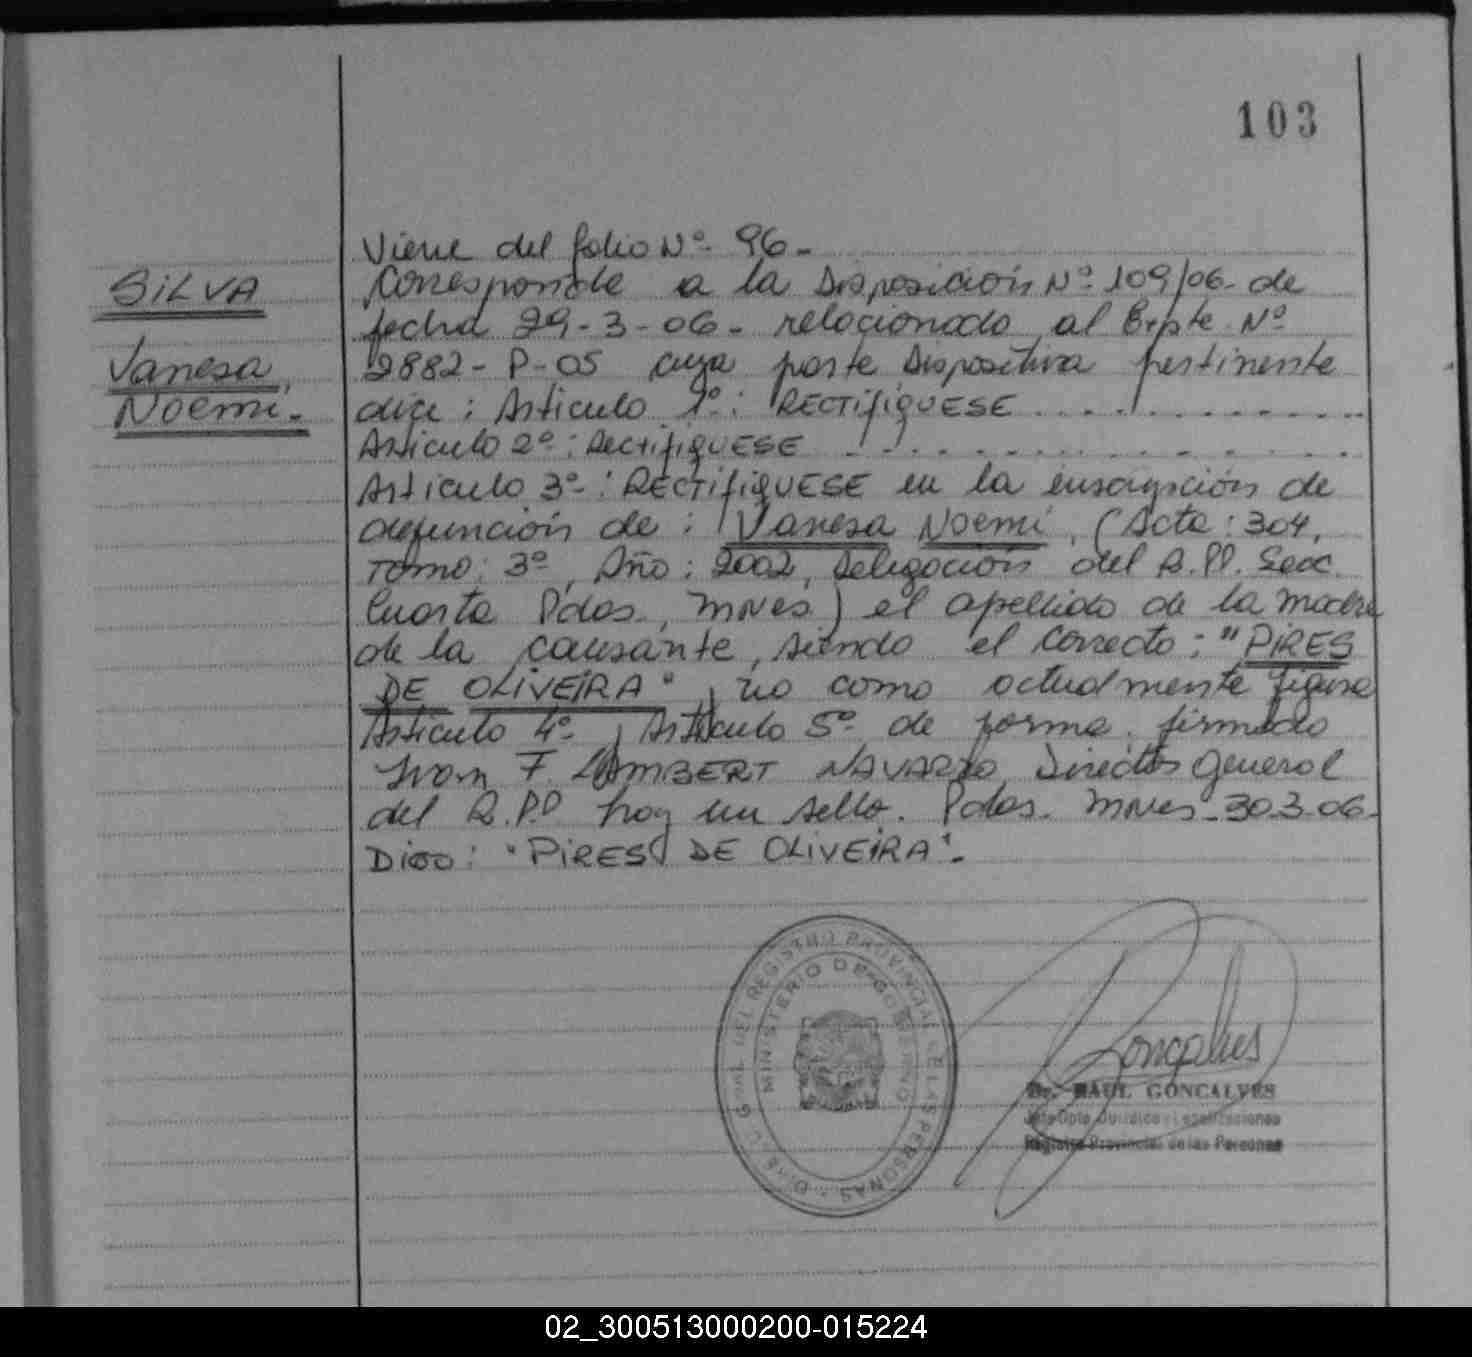 103
SILVA
Vanesa,
Noemí.-
Viene del folio Nº 96-
Corresponde a la Disposición Nº 109/06- de
fecha 29-3-06- relacionado al Expte Nº
2882-P-05 cuya parte Dispositiva pertinente
dice: Artículo 1º: RECTIFIQUESE ..............
Artículo 2º: Rectifiquese ..............
Artículo 3º: RECTIFIQUESE en la inscripción de
defunción de: Vanesa Noemí, (Acta: 304,
Tomo: 3º, Año: 2002, Delegación del R.PP. Secc.
Cuarta Pdas., Mnes) el apellido de la madre
de la causante, siendo el correcto: "PIRES
DE OLIVEIRA", no como actualmente figura
Artículo 4º, Artículo 5º de forma. firmado
Ivan F. LAMBERT NAVARRO Director General
del R.P.P hay un sello. Pdas. Mnes- 30-3-06-
Digo: "PIRES DE OLIVEIRA".-
GRAL DEL REGISTRO PROVINCIAL DE LAS PERSONAS
MINISTERIO DE GOBIERNO
Goncalves
Dr. RAUL GONCALVES
Jefe Dpto Jurídico Legalizaciones
Registro Provincial de las Personas
02_300513000200-015224